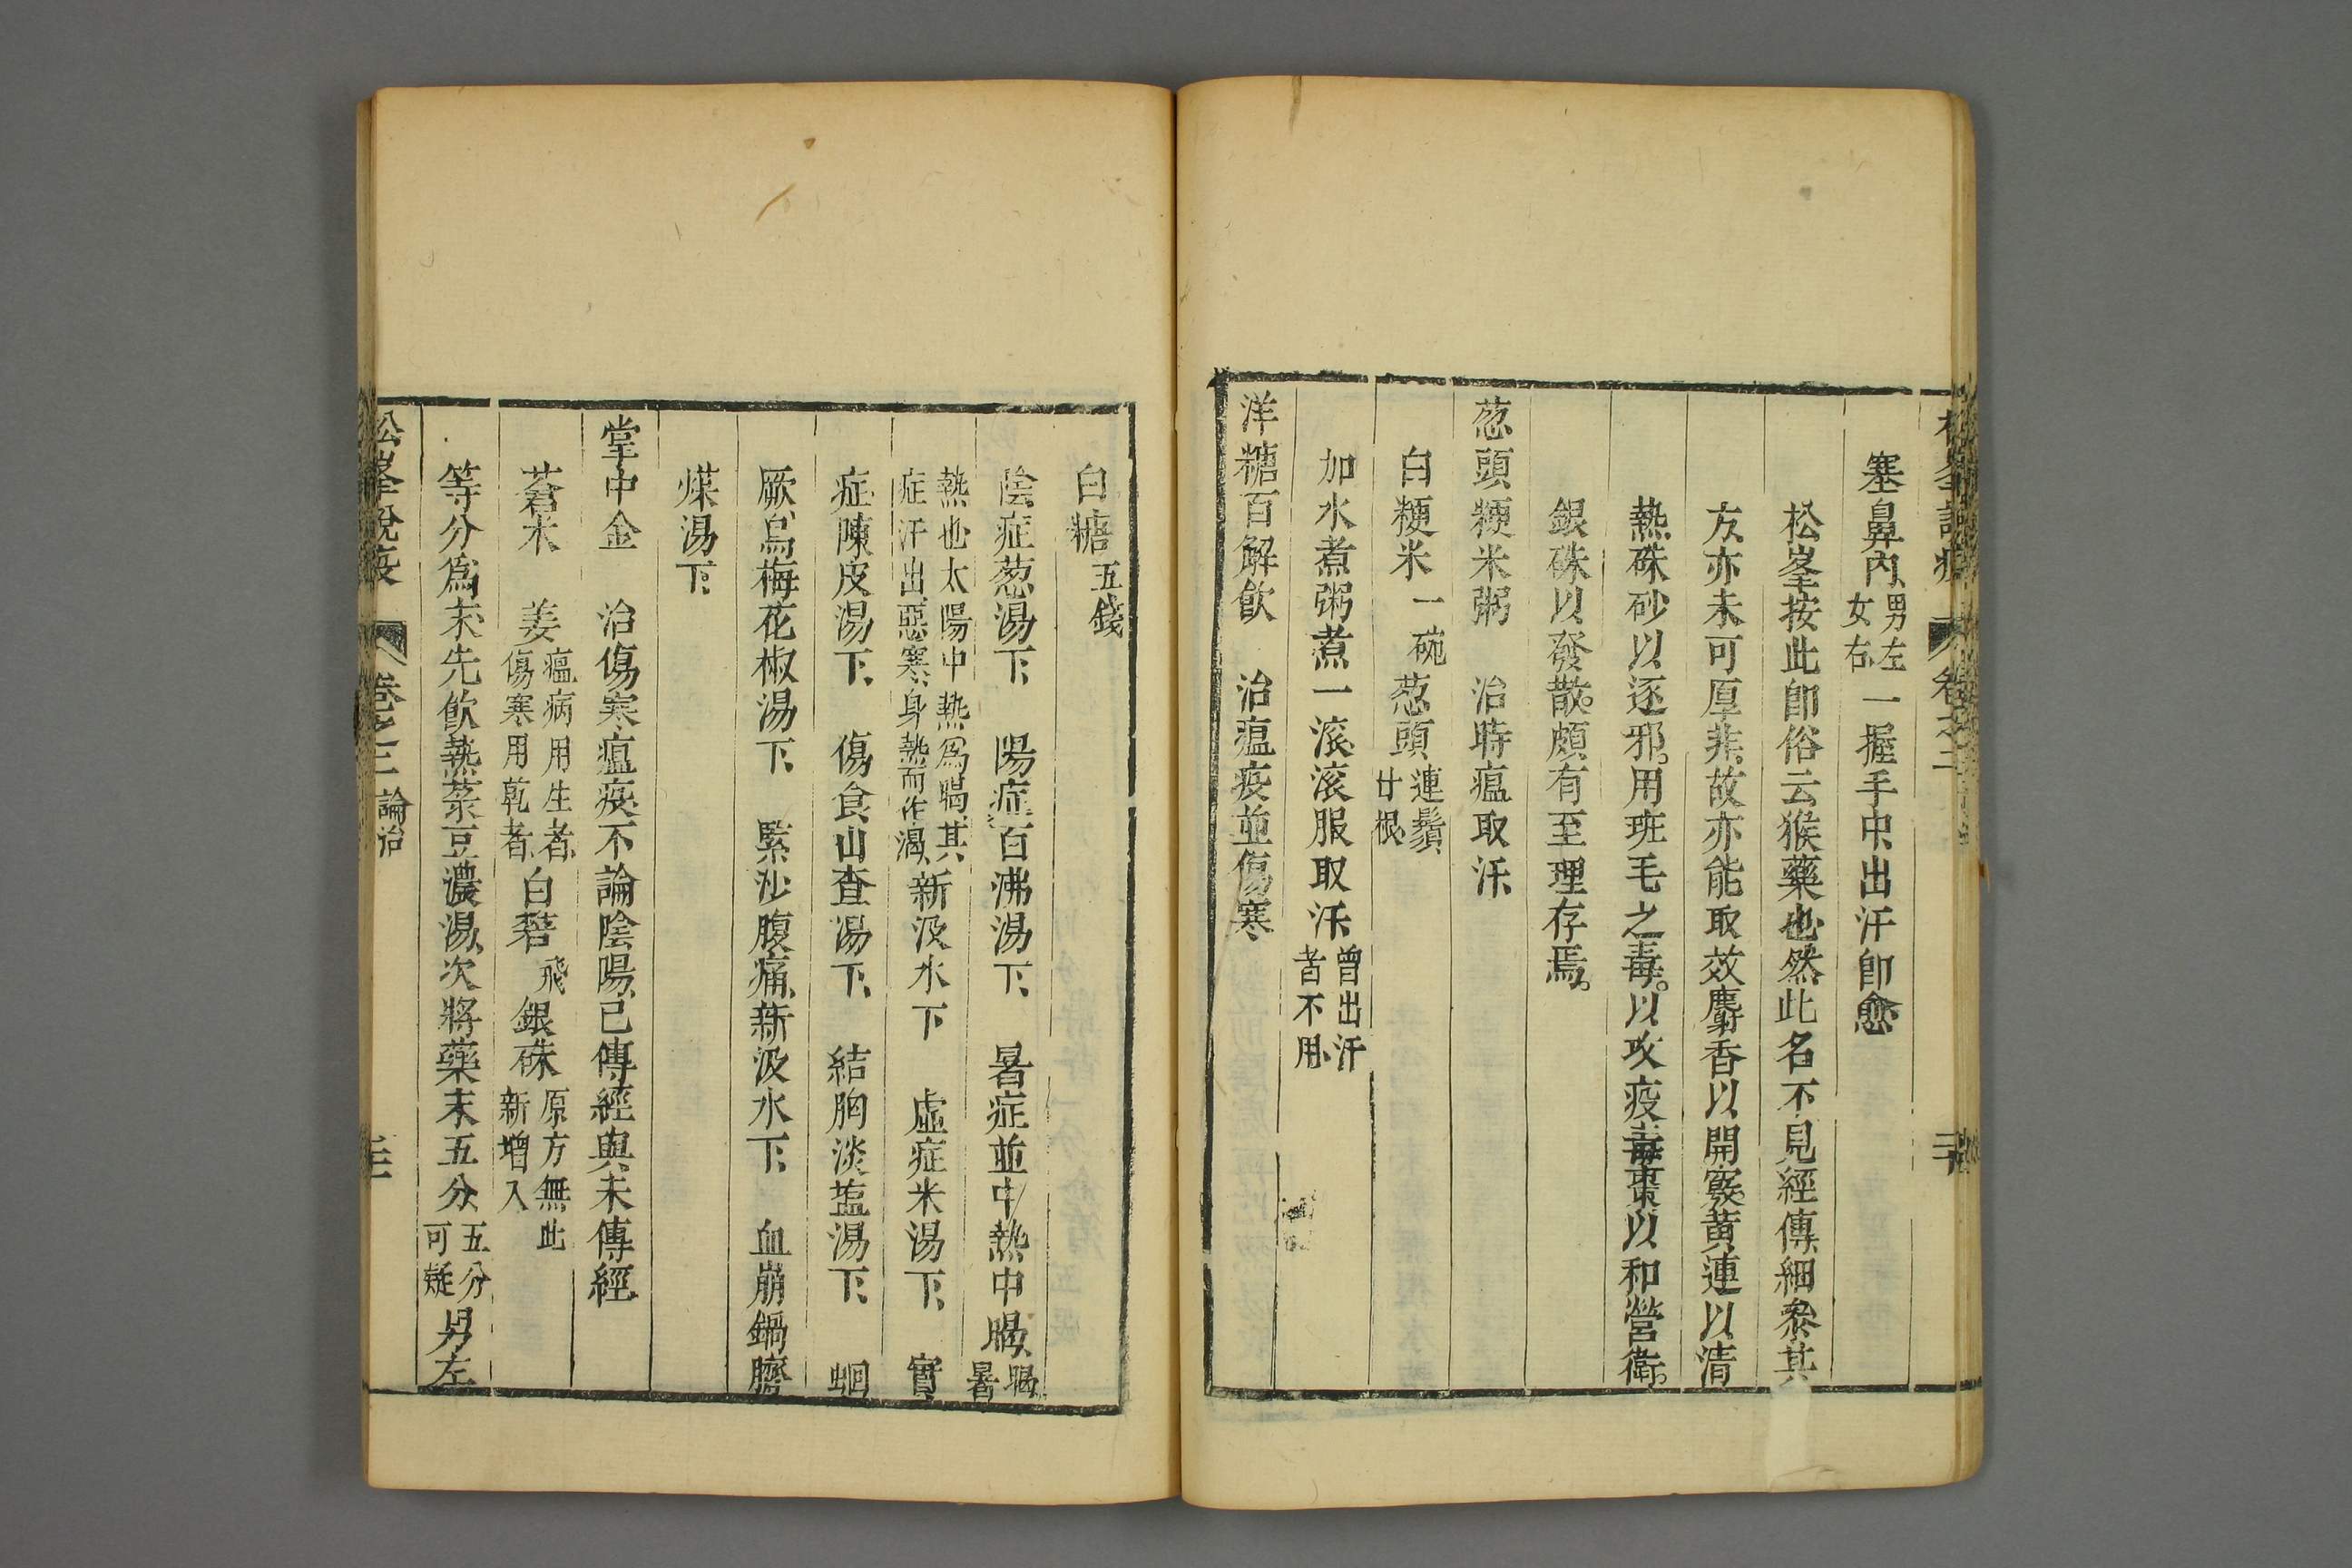 塞鼻內、男左女右、一握手中、出汗卽愈
松峯按此卽俗云猴藥也、然此名不見經傳、細叅其
方、亦未可厚非、故亦能取效、麝香以開竅、黃連以清
熱、硃砂以逐邪。用班毛之毒。以攻疫毒、棗以和營衛。
銀硃以發散。頗有至理存焉。
葱頭粳米粥　治時瘟取汗、
白粳米一碗　葱頭連鬚、廿根、
加水煮粥、煮一滾、滾服取汗、曾出汗者不用、
洋糖百解飲　治瘟疫並傷寒、
白糖五錢
陰症葱湯下、　陽症百沸湯下、　暑症並中熱中暍、暍、暑
熱也、太陽中熱爲暍、其症汗出惡寒、身熱而作渴、新汲水下　虛症米湯下、　實
症陳皮湯下、　傷食山查湯下、　結胸淡塩湯下、　蛔
厥、烏梅花椒湯下、　緊沙腹痛、新汲水下、　血崩鍋臍
煤湯下、
堂中金　治傷寒、瘟疫、不論陰陽、已傳經與未傳經
蒼朮　姜瘟病用生者、傷寒用乾者、白礬飛　銀硃原方無此新增入
等分爲末、先飲熱菉豆濃湯、次將藥末五分、五分可疑男左
松峯說疫　卷之三　論治